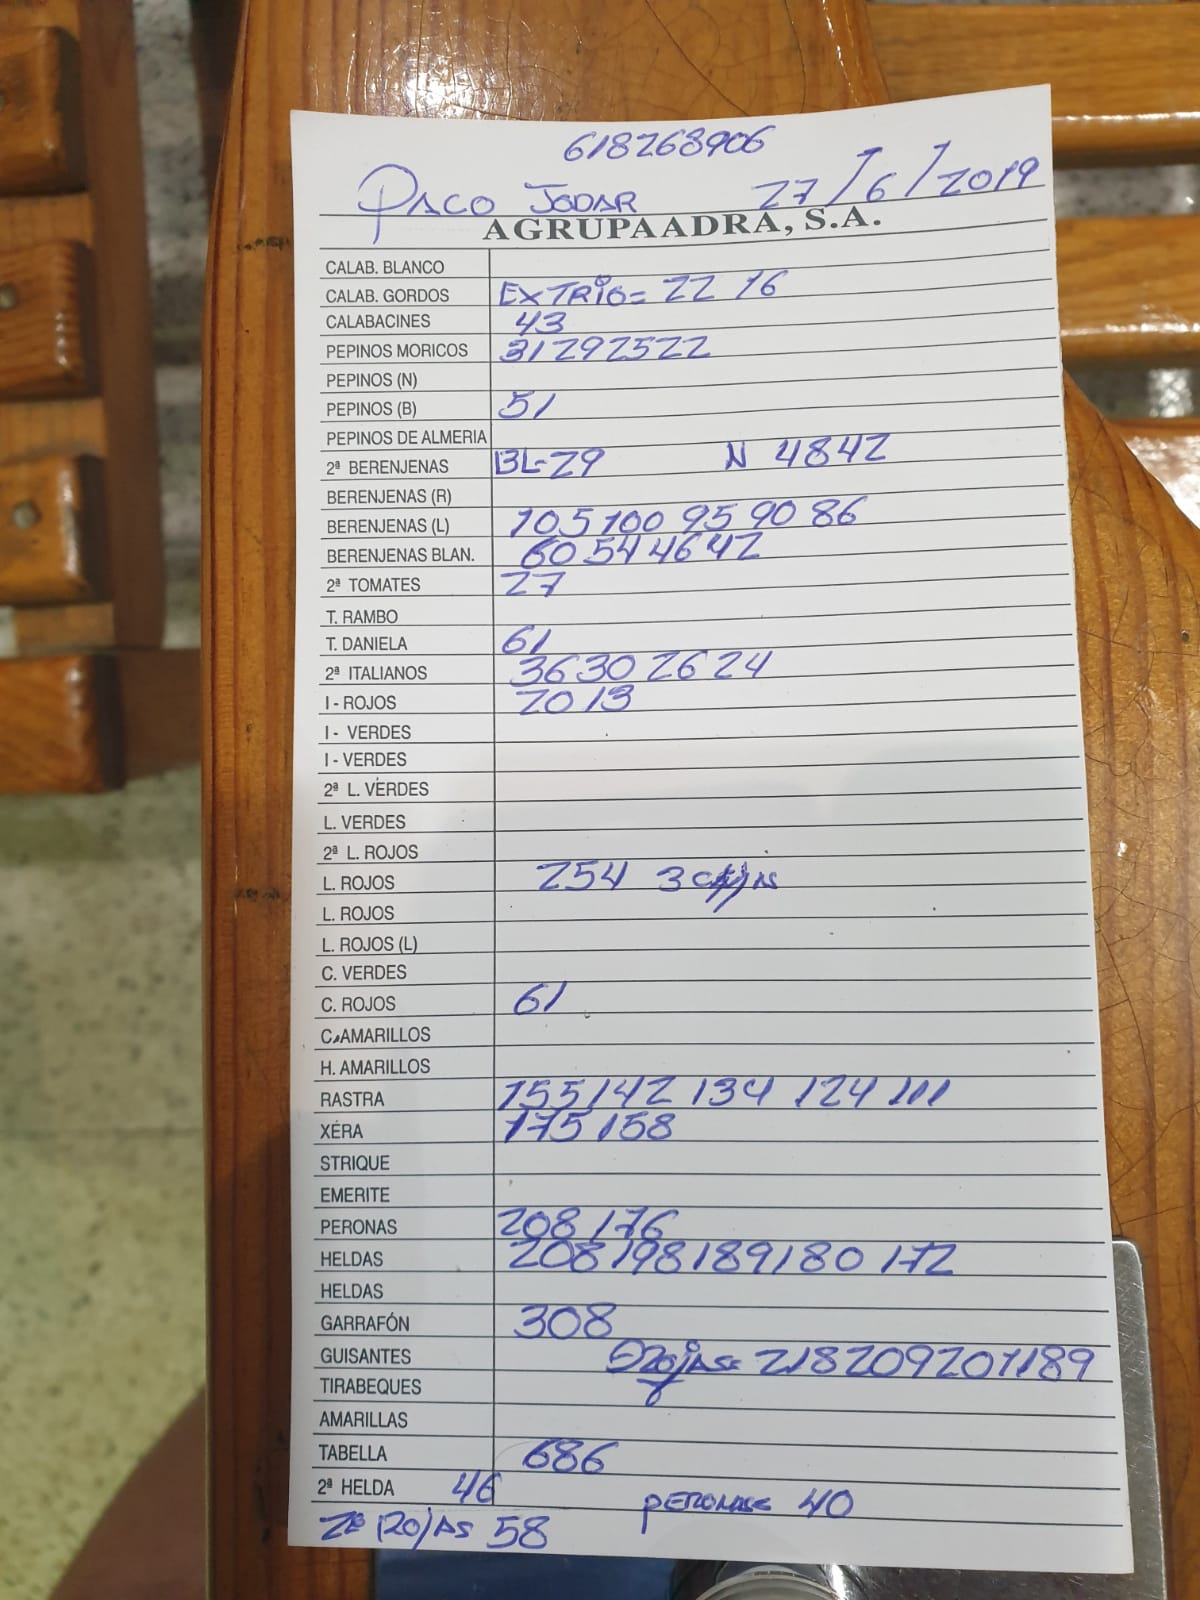 618268906
PACO JODAR 27/6/2019
AGRUPAADRA, S.A.
CALAB. BLANCO
CALAB. GORDOS EXTRIO= 22 16
CALABACINES 43
PEPINOS MORICOS 31 29 25 22
PEPINOS (N)
PEPINOS (B) 51
PEPINOS DE ALMERIA
2ª BERENJENAS BL-29 N 48 42
BERENJENAS (R)
BERENJENAS (L) 105 100 95 90 86
BERENJENAS BLAN. 60 54 46 42
2ª TOMATES 27
T. RAMBO
T. DANIELA 61
2ª ITALIANOS 36 30 26 24
I - ROJOS 20 13
I - VERDES
I - VERDES
2ª L. VERDES
L. VERDES
2ª L. ROJOS
L. ROJOS 254 3 cajas
L. ROJOS
L. ROJOS (L)
C. VERDES
C. ROJOS 61
C. AMARILLOS
H. AMARILLOS
RASTRA 155 142 134 124 111
XERA 175 158
STRIQUE
EMERITE
PERONAS 208 176
HELDAS 208 198 189 180 172
HELDAS
GARRAFÓN 308
GUISANTES 218 209 201 189
TIRABEQUES
AMARILLAS
TABELLA 686
2ª HELDA 46 PERONAS= 40
2ª ROJAS 58